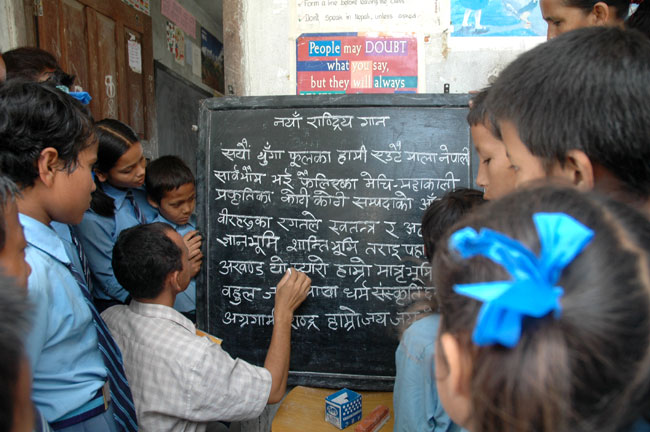 Form a line before
Don't Speak in Nepali, unless
People may DOUBT
what you say,
but they will always
नयाँ राष्ट्रिय गान
सयौं थुँगा फुलका हामी एउटै माला नेपाली
सार्वभौम भई फैलिएका मेचि-महाकाली
प्रकृतिका कोटी कोटी सम्पदाको
वीरहरुका रगतले स्वतन्त्र र
ज्ञानभूमि शान्तिभूमि तराइ
अखण्ड यो प्यारो हाम्रो मातृभूमि
बहुल धर्म संस्कृति
अग्रगामी हाम्रो जय